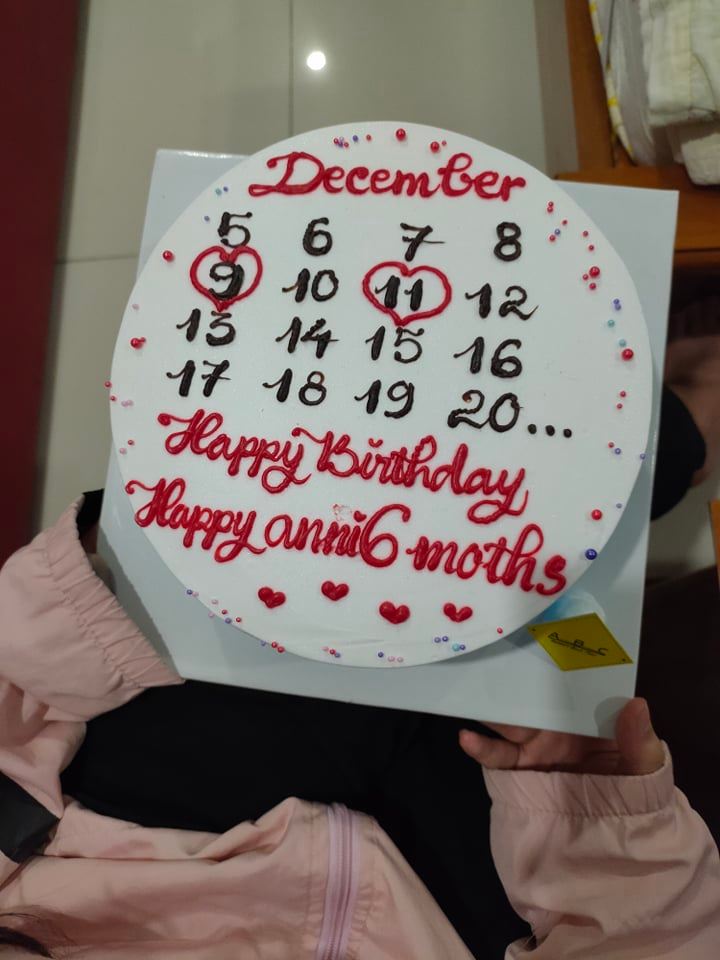 December
5 6 7 8
9 10 11 12
13 14 15 16
17 18 19 20...
Happy Birthday
Happy anni6 moths